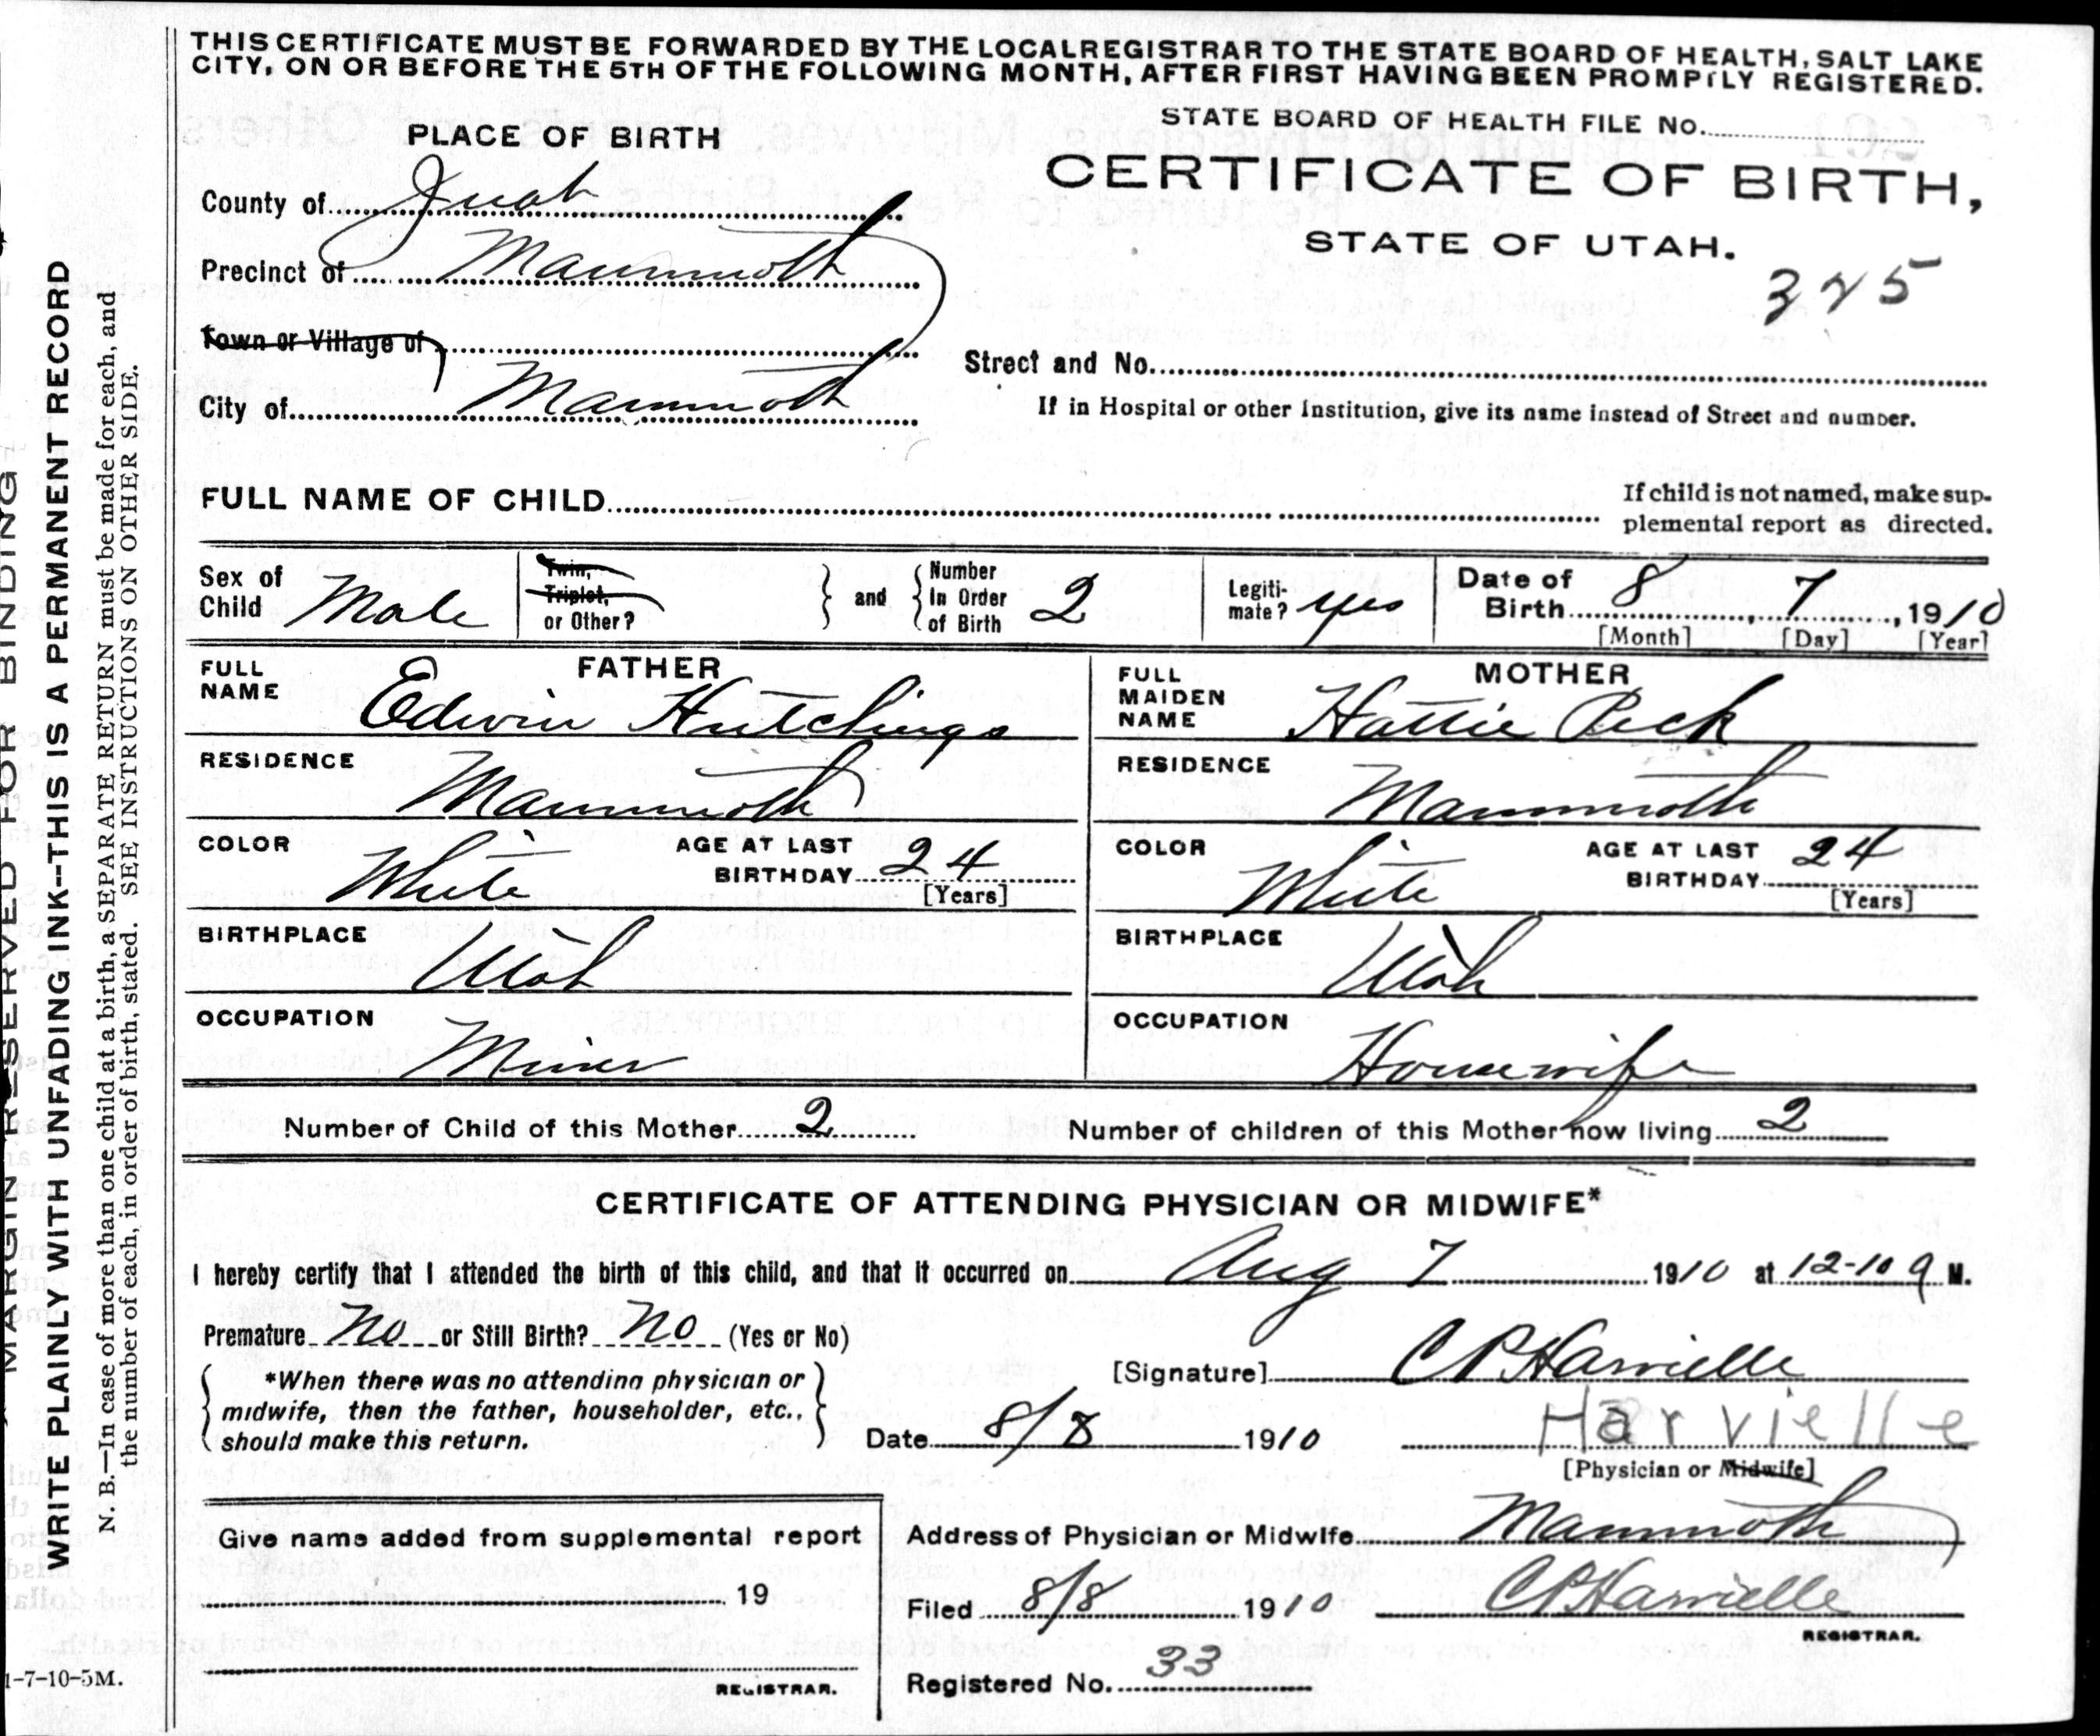 THIS CERTIFICATE MUST BE FORWARDED BY THE LOCAL REGISTRAR TO THE STATE BOARD OF HEALTH, SALT LAKE
CITY, ON OR BEFORE THE 5TH OF THE FOLLOWING MONTH, AFTER FIRST HAVING BEEN PROMPTLY REGISTERED.
STATE BOARD OF HEALTH FILE No.
PLACE OF BIRTH
CERTIFICATE OF BIRTH,
STATE OF UTAH.
325
County of Juab
Precinct of Mammoth
Town or Village of
City of Mammoth
Street and No.
If in Hospital or other Institution, give its name instead of Street and number.
FULL NAME OF CHILD
If child is not named, make sup-
plemental report as directed.
Sex of Child Male
Twin, Triplet, or Other?
and
Number In Order of Birth 2
Legiti-mate? yes
Date of Birth 8, 7, 1910
[Month] [Day] [Year]
FATHER
FULL NAME Edwin Hutchings
RESIDENCE Mammoth
COLOR White AGE AT LAST BIRTHDAY 24 [Years]
BIRTHPLACE Utah
OCCUPATION Miner
MOTHER
FULL MAIDEN NAME Hattie Peck
RESIDENCE Mammoth
COLOR White AGE AT LAST BIRTHDAY 24 [Years]
BIRTHPLACE Utah
OCCUPATION Housewife
Number of Child of this Mother 2 Number of children of this Mother now living 2
CERTIFICATE OF ATTENDING PHYSICIAN OR MIDWIFE*
I hereby certify that I attended the birth of this child, and that it occurred on Aug 7 1910 at 12-10 a M.
Premature No or Still Birth? No (Yes or No)
*When there was no attending physician or
midwife, then the father, householder, etc.,
should make this return.
[Signature] C P Harvielle
Date 8/8 1910 Harvielle
[Physician or Midwife]
Give name added from supplemental report
19
REGISTRAR.
Address of Physician or Midwife Mammoth
Filed 8/8 1910 C P Harvielle
REGISTRAR.
Registered No. 33
MARGIN RESERVED FOR BINDING
WRITE PLAINLY WITH UNFADING INK--THIS IS A PERMANENT RECORD
N. B.—In case of more than one child at a birth, a SEPARATE RETURN must be made for each, and
the number of each, in order of birth, stated. SEE INSTRUCTIONS ON OTHER SIDE.
1-7-10-5M.